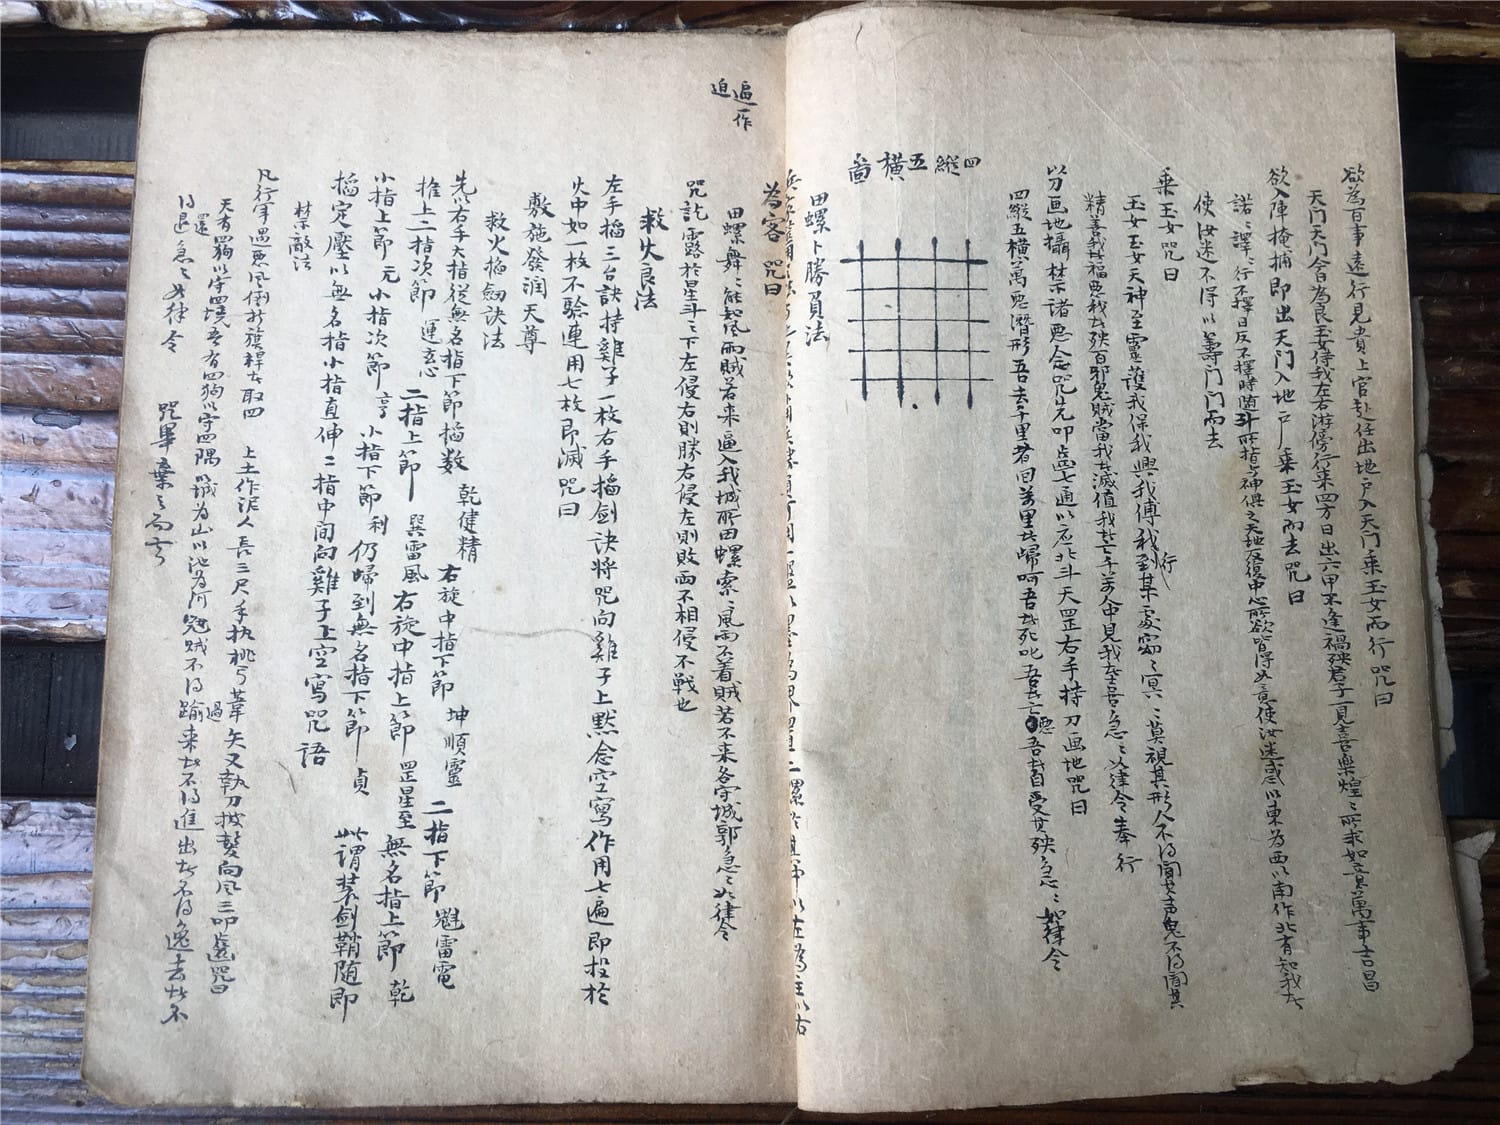 欲為百事遠行見貴上官赴任出地戸入天門乘玉女而行咒曰
天門天門會為良玉女侍我左右游傍行來四方日出六甲不逢禍殃君子一見喜樂煌〻所求如意萬事吉昌
欲入陣掩捕即出天門入地戸乘玉女而去咒曰
諾〻譯〻行不擇日反不擇時隨斗所指與神俱之天地反復中心所欲皆得如意使汝迷惑以東為西以南作北有知我者
使汝迷不得以籌門門而去
乘玉女咒曰
玉女玉女天神至靈護我保我與我傅我到某處窈〻冥〻莫視其形人不得聞其声鬼不得聞其
行
精善我者福惡我者殃百邪鬼賊當我者滅值我者亡千万人中見我者喜急〻以律令奉行
以刀画地攝禁諸惡念咒先叩齒七通以应北斗天罡右手持刀画地咒曰
四縱五橫萬惡潛形吾去千里者回万里者歸呵吾者死叱吾者亡吾者自受其殃急〻如律令
四縱五橫啚
田螺卜勝負法
為客 咒曰
遍作
迫
田螺舞〻能知風雨賊若來逼入我城所田螺索〻風雨不着賊若不來各守城郭急〻如律令
咒訖露於星斗之下左侵右則勝右侵左則敗而不相侵不戰也
救火良法
左手搯三台訣持雞子一枚右手搯剑訣将咒向雞子上默念空寫作用七遍即投於
火中如一枚不验連用七枚即滅咒曰
敷施發润天尊
救火搯劍訣法
先以右手大指從無名指下節搯数 乾健精 右旋中指下節 坤順靈 二指下節 魁雷電
推上二指次節 運玄心 二指上節 巽雷風 右旋中指上節 罡星至 無名指上節 乾
小指上節 元 小指次節 亨 小指下節 利 仍歸到無名指下節 貞 此謂装剑鞘随即
搯定壓以無名指小指直伸二指中間向雞子上空寫咒語
禁敵法
凡行軍遇惡風倒折旗稈者取四 上土作泥人長三尺手执桃弓葦矢又執刀披髮向风三叩齒咒曰
天有罡以守四境吾有四狗以守四隅以城为山以池为河寇贼不得踰來者不得進出者不得逸去者不
過
得退急〻如律令 咒畢棄之而去
還